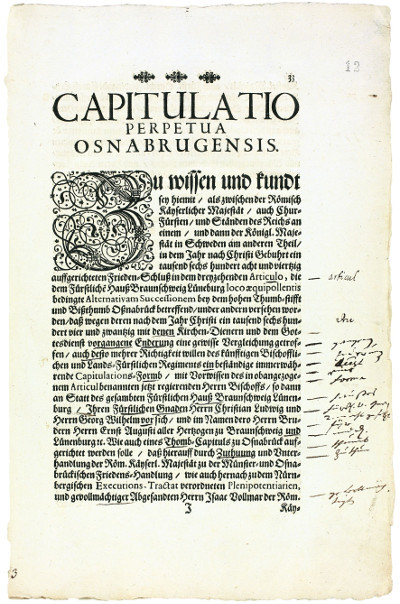 12
33
CAPITULATIO
PERPETUA
OSNABRUGENSIS.
Zu wissen und kundt
sey hiemit / als zwischen der Römisch
Käyserlicher Majestät / auch Chur-
Fürsten / und Ständen des Reichs an
einem / und dann der Königl. Maje-
stät in Schweden am anderen Theil /
in dem Jahr nach Christi Gebuhrt ein
tausend sechs hundert acht und viertzig
auffgerichteten Frieden-Schluß in dem dreyzehenden Articulo, die
dem Fürstliche Hauß Braunschweig Lüneburg loco æquipollentis
bedingte Alternativam Successionem bey dem hohen Thumb-stifft
und Bißthumb Oßnabrück betreffend / under andern versehen wor-
den / daß wegen deren nach dem Jahr Christi ein tausend sechs hun-
dert vier und zwantzig mit denen Kirchen-Dienern und dem Got-
tesdienst vorgangene Enderung eine gewisse Vergleichung getrof-
fen / auch desto mehrer Richtigkeit willen des künfftigen Bischofli-
chen und Lands-Fürstlichen Regiments ein beständige immerwäh-
rende Capitulations-Formb / mit Vorwissen des in obangezoge-
nem Articul benannten jetzt regierenden Herrn Bischofs / so dann
an Statt des gesambten Fürstlichen Hauß Braunschweig Lünen-
burg / Ihren Fürstlichen Gnaden Herrn Christian Ludwig und
Herrn Georg Wilhelm vor sich / und im Namen dero Herrn Bru-
dern Herrn Ernst Augusti aller Hertzogen zu Braunschweig und
Lünenburg rc. Wie auch eines Thomb-Capituls zu Oßnabrück auf-
gerichtet werden solle / daß hierauff durch Zuthuung und Unter-
handlung der Röm. Käyserl. Majestät zu der Münster- und Oßna-
brückischen Friedens-Handlung / wie auch hernach zu dem Nürn-
bergischen Executions-Tractat verordneten Plenipotentiarien,
und gevollmächtiger Abgesandten Herrn Isaac Vollmar der Röm.
J Käy-
articul
forma
3